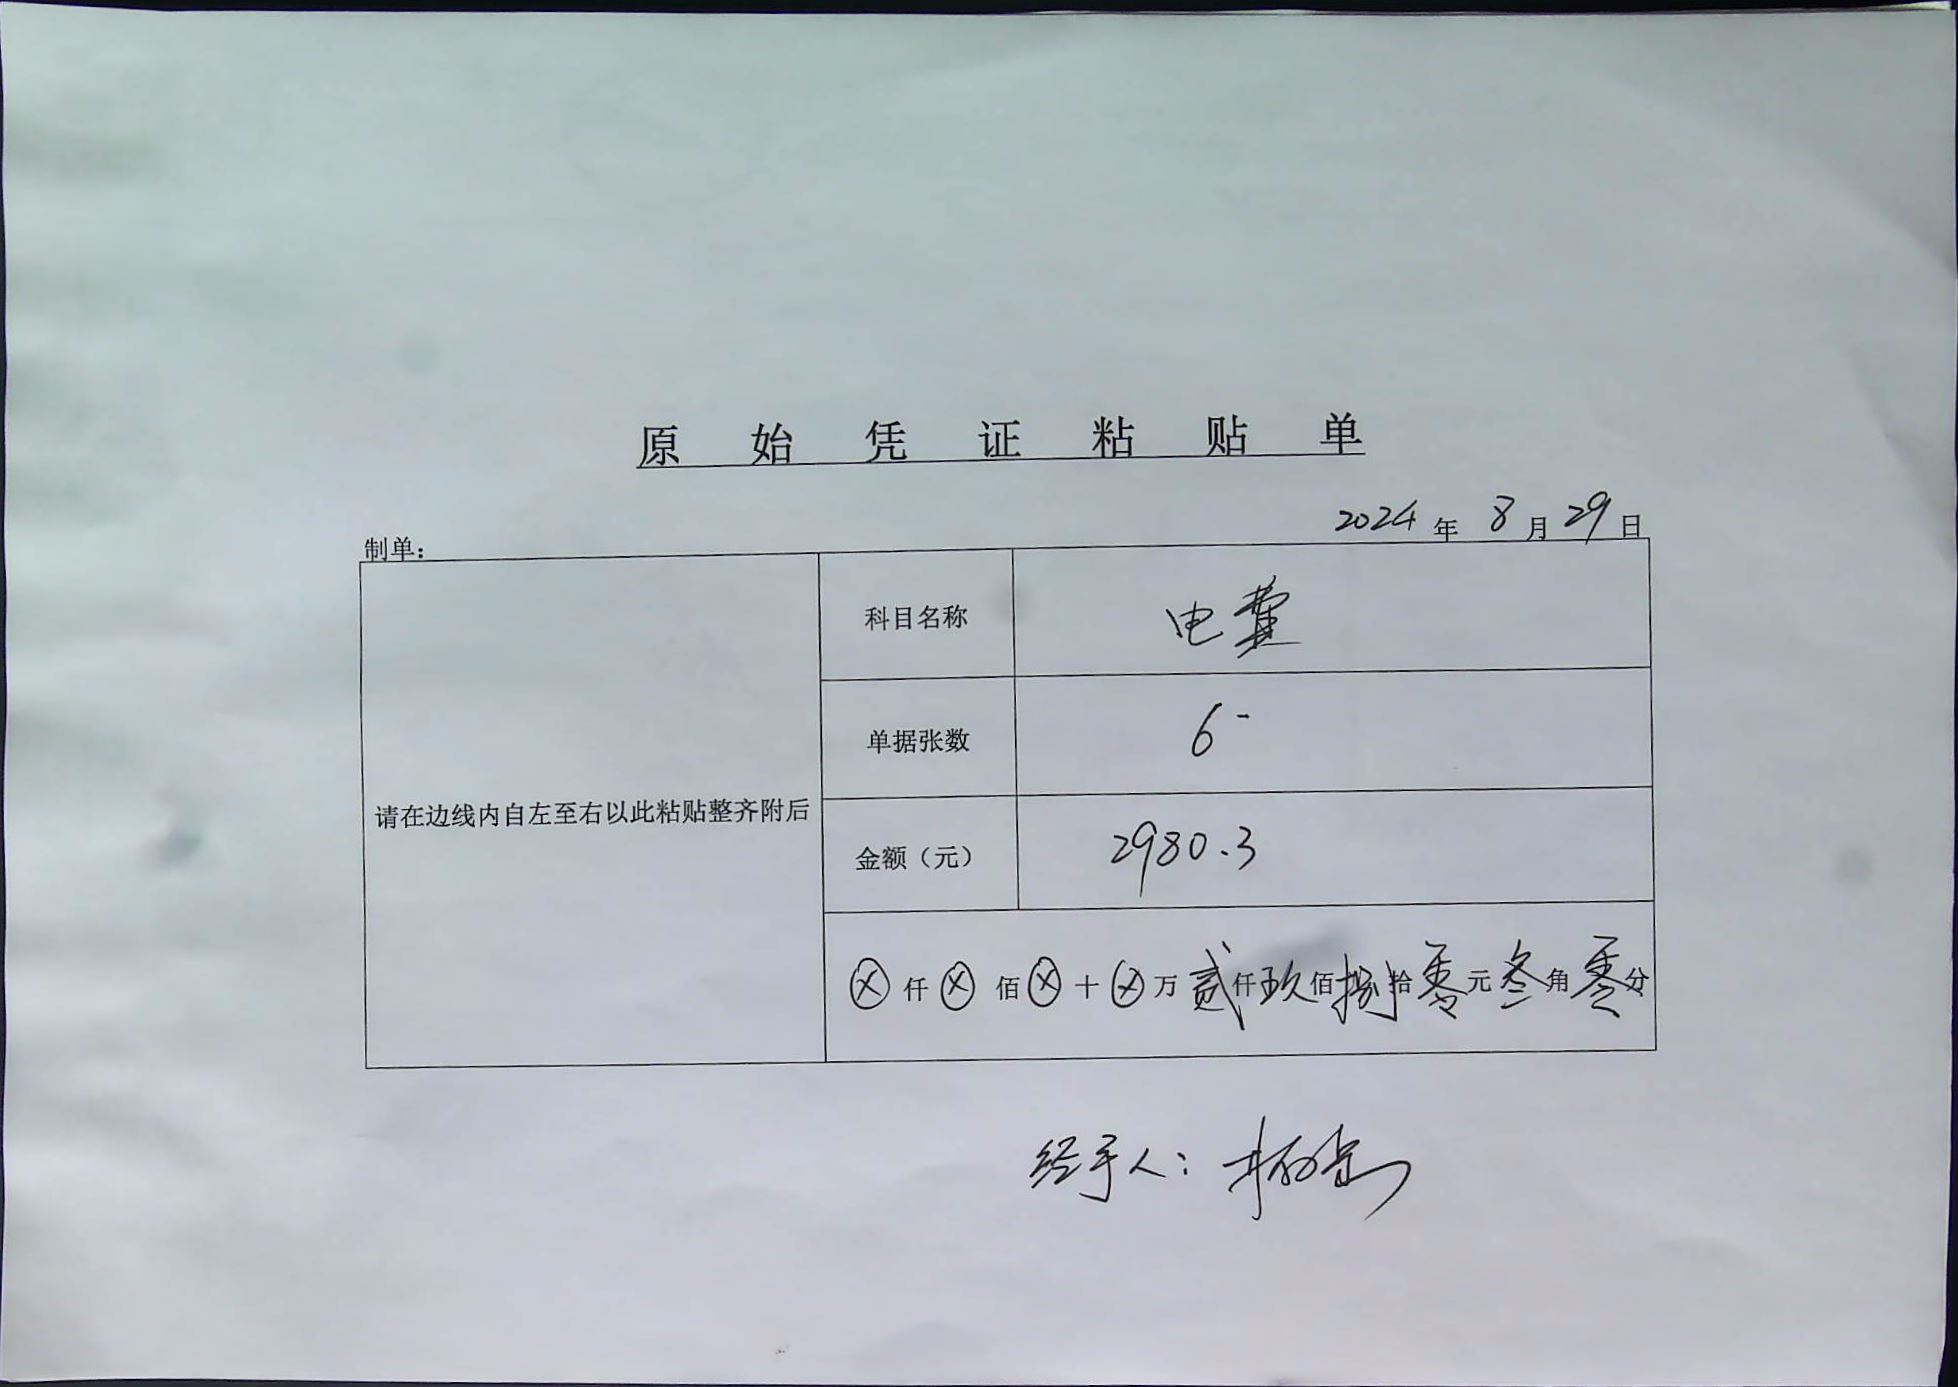 原始凭证粘贴单
2024年8月29日
制单：
科目名称 电费
单据张数 6
请在边线内自左至右以此粘贴整齐附后
金额（元） 2980.3
ⓧ仟ⓧ佰ⓧ十ⓧ万贰仟玖佰捌拾零元叁角零分
经手人：